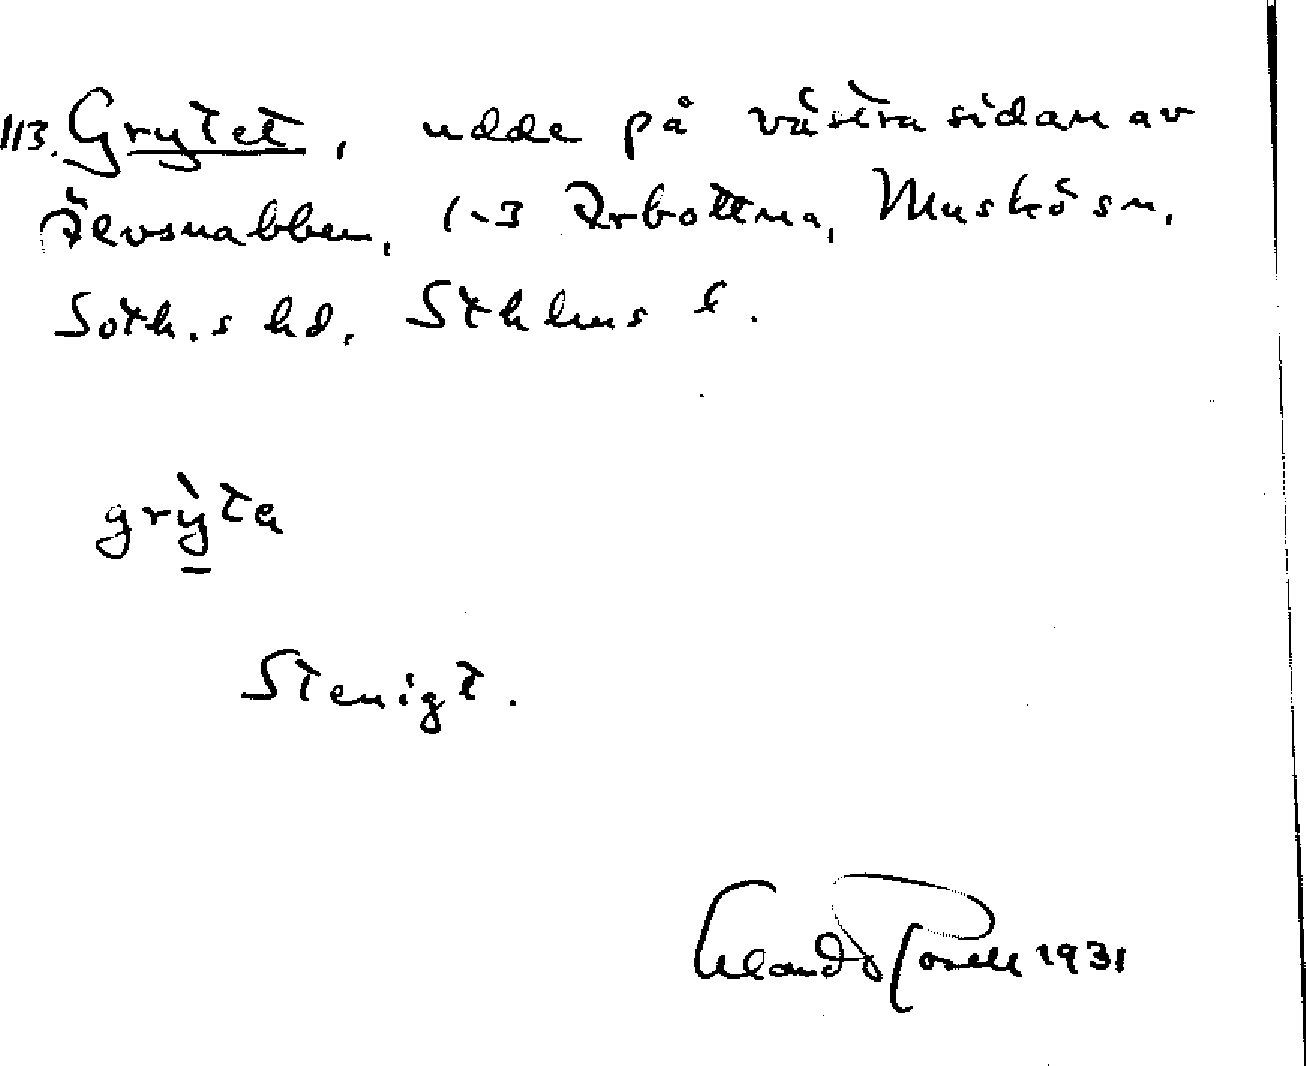 113. Grytet, udde på västra sidan av
Älvsnabben, 1-3 Arbottna, Muskö sn,
Soth.s hd, Sthlms l.
grỳta
Stenigt.
1931